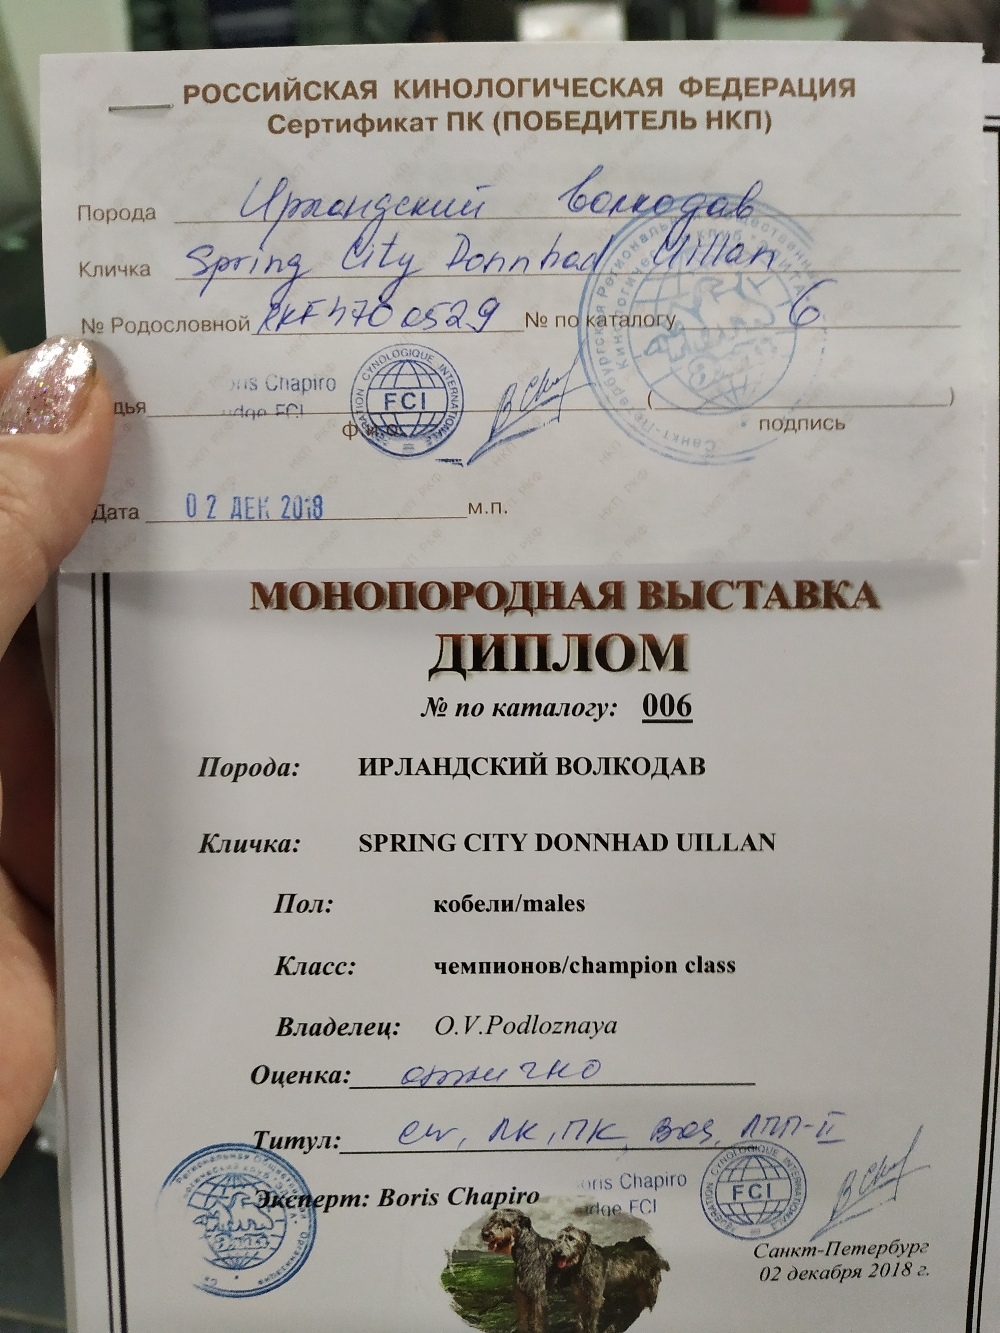 РОССИЙСКАЯ КИНОЛОГИЧЕСКАЯ ФЕДЕРАЦИЯ
Сертификат ПК (ПОБЕДИТЕЛЬ НКП)
Порода Ирландский волкодав
Кличка Spring City Donnhad Uillan
№ Родословной RKF 4700529 № по каталогу 6
дья
ris Chapiro
udge FCI
FEDERATION CYNOLOGIQUE INTERNATIONALE
FCI
Ф.И.О.
( )
подпись
Дата 02 ДЕК 2018 м.п.
МОНОПОРОДНАЯ ВЫСТАВКА
ДИПЛОМ
№ по каталогу: 006
Порода: ИРЛАНДСКИЙ ВОЛКОДАВ
Кличка: SPRING CITY DONNHAD UILLAN
Пол: кобели/males
Класс: чемпионов/champion class
Владелец: O.V.Podloznaya
Оценка: отлично
Титул: CW, ЛК, ПК, BOS, ЛПП-II
Эксперт: Boris Chapiro
oris Chapiro
udge FCI
FEDERATION CYNOLOGIQUE INTERNATIONALE
FCI
Санкт-Петербург
02 декабря 2018 г.